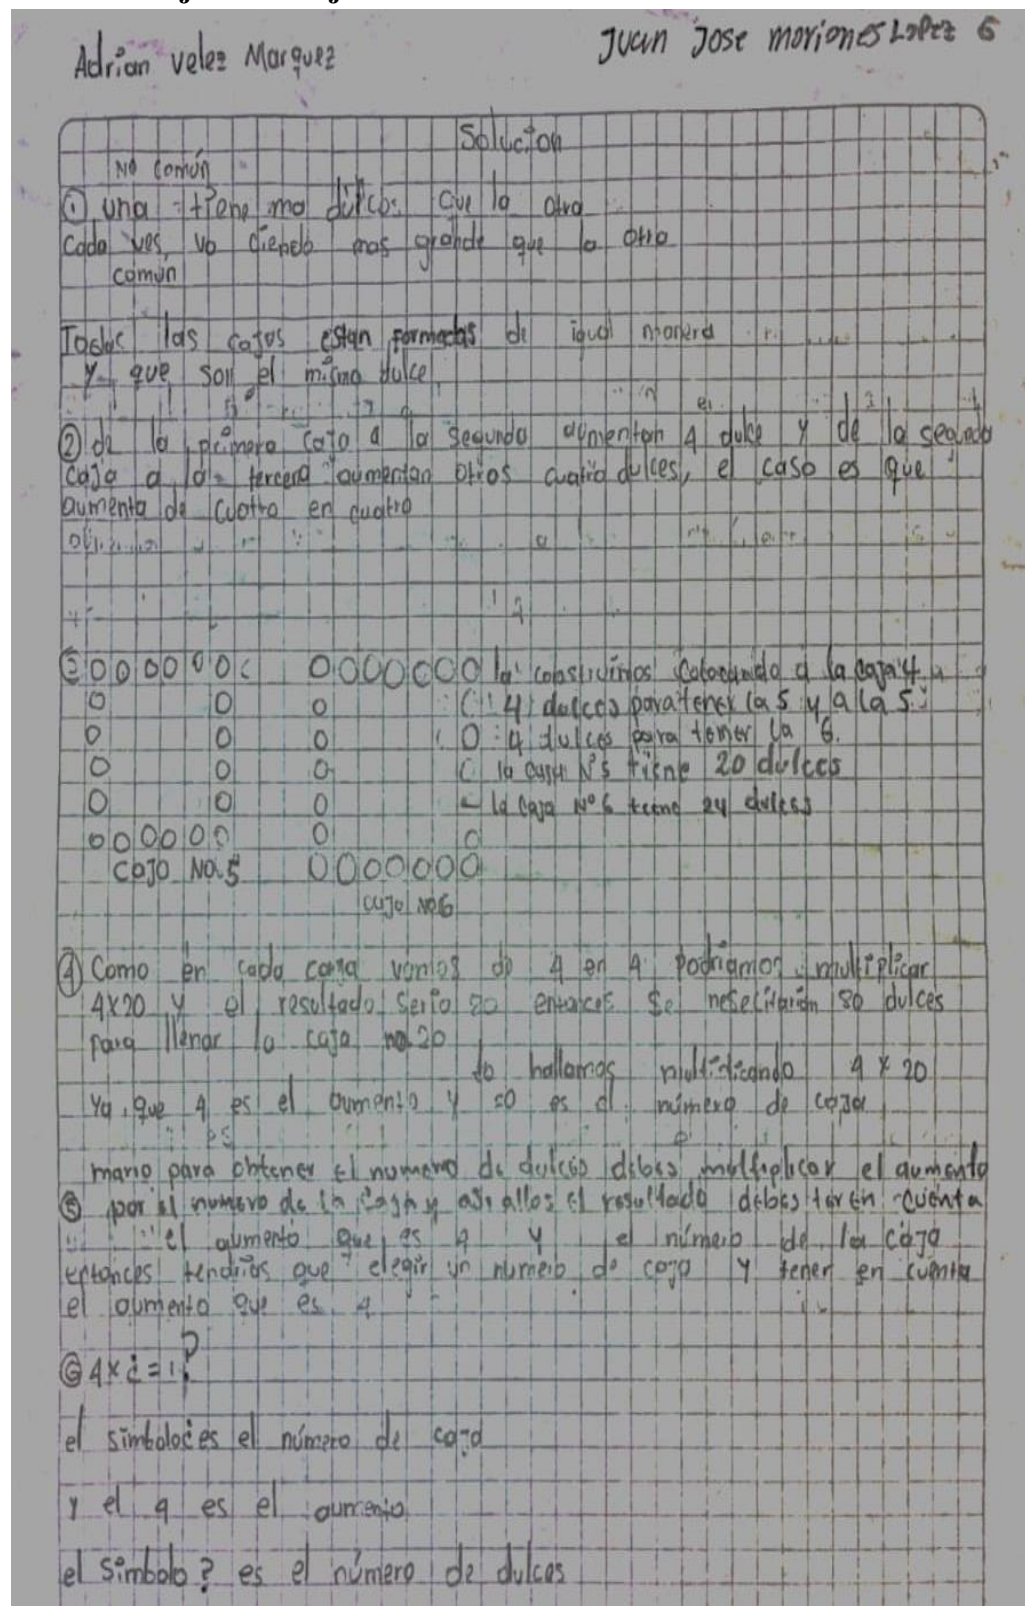 Adrian velez Marquez
Juan Jose moriones Lopez 6
Solucion
No común
① una tiene mas dulces que la otra
Cada ves va siendo mas grande que la otra
común
Todas las cajas estan formadas de igual manera
y que son el mismo dulce
② de la primera caja a la segunda aumentan 4 dulce y de la segunda
caja a la tercera aumentan otros cuatro dulces, el caso es que
aumenta de cuatro en cuatro
la construimos colocando a la caja 4
4 dulces para tener la 5 y a la 5
4 dulces para tener la 6.
la caja N°5 tiene 20 dulces
la caja N°6 tiene 24 dulces
caja No.5
caja No6
④ Como en cada caja vamos de 4 en 4 podriamos multiplicar
4x20 y el resultado seria 80 entonces se nesecitarian 80 dulces
para llenar la caja no.20
lo hallamos multiplicando 4 x 20
Ya que 4 es el aumento y 20 es el número de caja
mario para obtener el numero de dulces debes multiplicar el aumento
⑤ por el numero de la caja y asi allas el resultado debes tener en cuenta
el aumento que es 4 y el número de la caja
entonces tendrias que elegir un numero de caja y tener en cuenta
el aumento que es 4
⑥ 4x¿=?
el simbolo¿es el número de caja
y el 4 es el aumento
el simbolo ? es el número de dulces